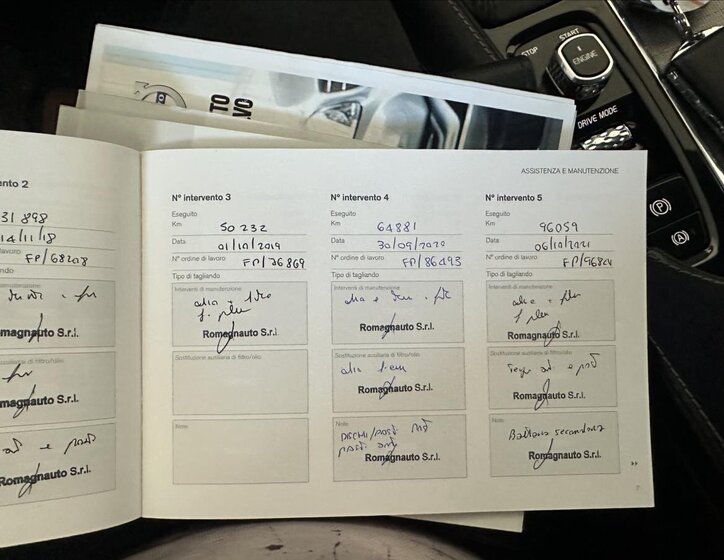 START
STOP
ENGINE
DRIVE MODE
TO
VO
ASSISTENZA E MANUTENZIONE
ento 2
31 898
14/11/18
avoro FP/68208
Romagnauto S.r.l.
Romagnauto S.r.l.
Romagnauto S.r.l.
N° intervento 3
Eseguito
Km 50 232
Data 01/10/2019
N° ordine di lavoro FP/76869
Tipo di tagliando
Interventi di manutenzione
Romagnauto S.r.l.
Sostituzione ausiliaria di filtro/olio
Note
N° intervento 4
Eseguito
Km 64881
Data 30/09/2020
N° ordine di lavoro FP/86493
Tipo di tagliando
Interventi di manutenzione
Romagnauto S.r.l.
Sostituzione ausiliaria di filtro/olio
Romagnauto S.r.l.
Note
DISCHI/POST.
Romagnauto S.r.l.
N° intervento 5
Eseguito
Km 96059
Data 06/10/2021
N° ordine di lavoro FP/96824
Tipo di tagliando
Interventi di manutenzione
Romagnauto S.r.l.
Sostituzione ausiliaria di filtro/olio
Romagnauto S.r.l.
Note
Batteria secondaria
Romagnauto S.r.l.
(P)
(A)